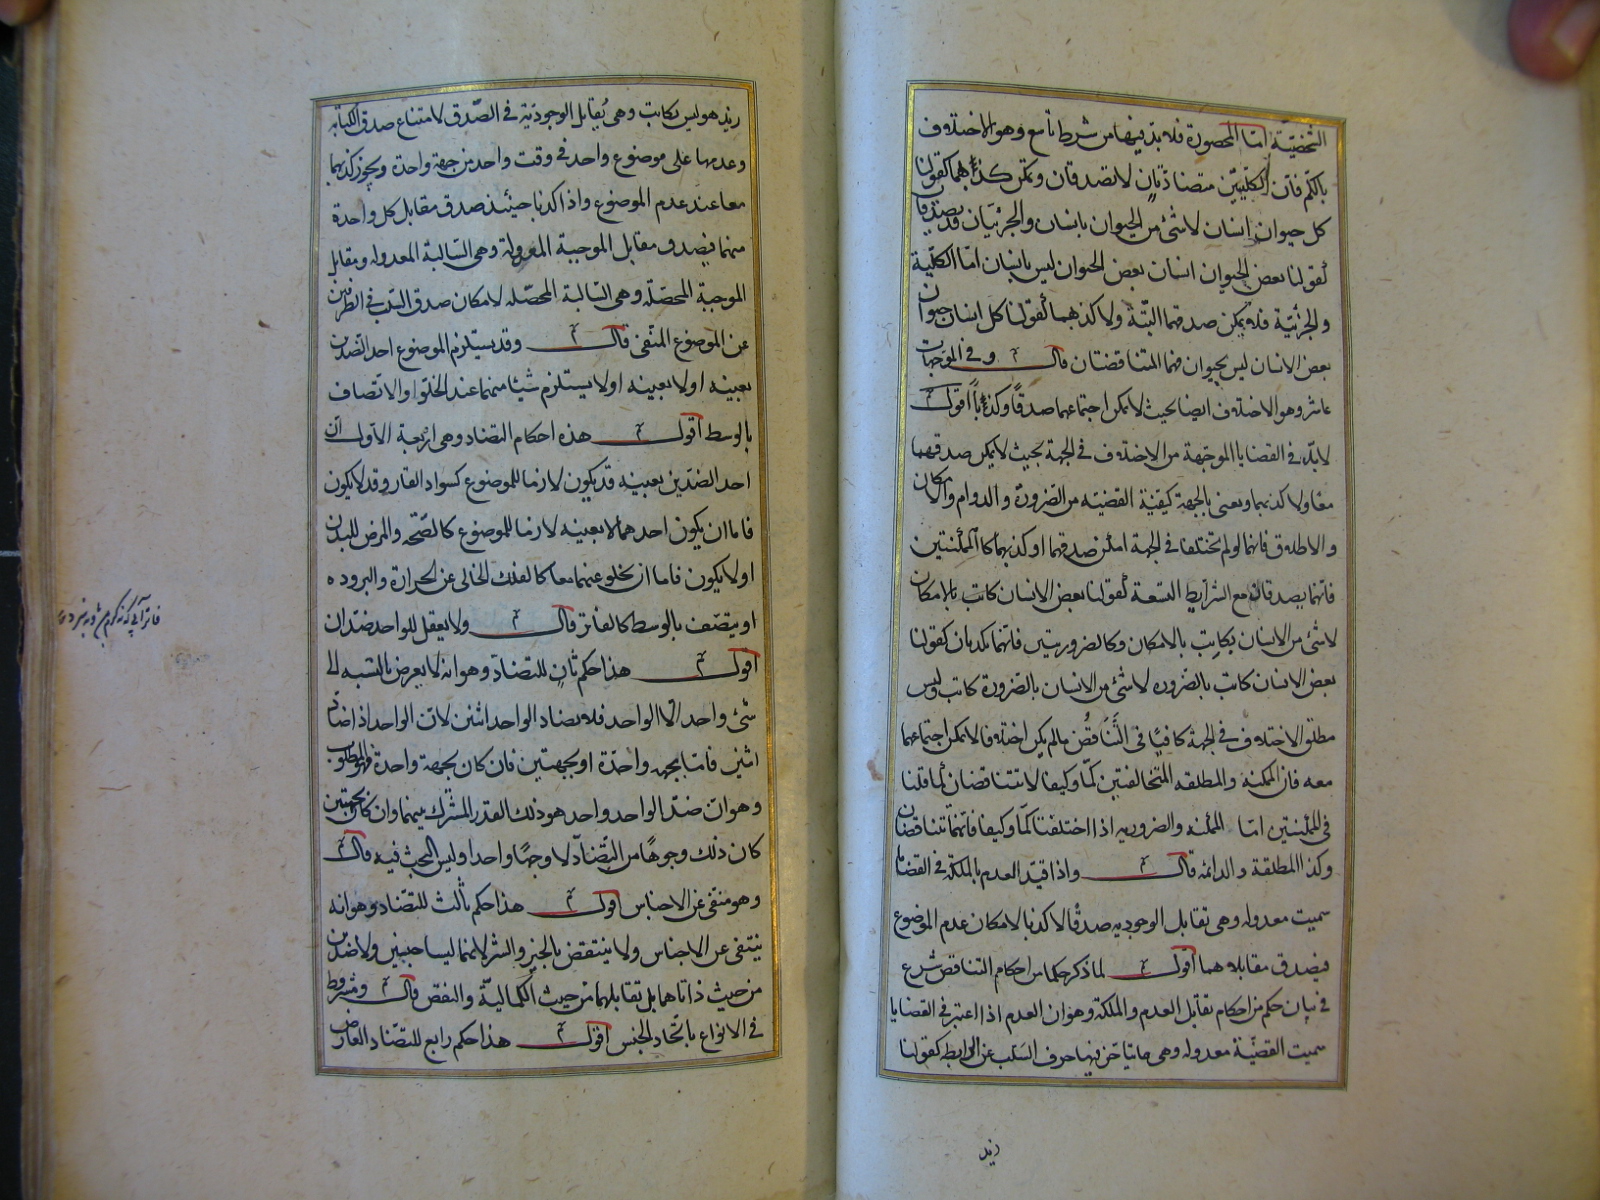 الشخصيّة امّا المحصورة فلا بدّ فيها من شرط تاسع وهو الاختلاف
بالكمّ فانّ الكليتين متضادّتان لا تصدقان ويمكن كذبهما كقولنا
كل حيوان انسان لا شئ من الحيوان بانسان والجزئيّتان قد تصدقان
كقولنا بعض الحيوان انسان بعض الحيوان ليس بانسان امّا الكلّية
والجزئيّة فلا يمكن صدقهما البتّة ولا كذبهما كقولنا كل انسان حيوان
بعض الانسان ليس بحيوان فهما المتناقضتان قال وفى الموجّهات
عاشر وهو الاختلاف ايضا بحيث لا يمكن اجتماعهما صدقًا وكذبًا اقول
لا بدّ فى القضايا الموجّهة من الاختلاف فى الجهة بحيث لا يمكن صدقهما
معا ولا كذبهما ونعنى بالجهة كيفية القضيّه من الضرورة والدوام والامكان
والاطلاق فانهما لو لم تختلفا فى الجهة امكن صدقهما او كذبهما كالممكنتين
فانّهما يصدقان مع الشرايط التسعة كقولنا بعض الانسان كاتب بالامكان
لا شئ من الانسان بكاتب بالامكان وكالضروريتين فانّهما تكذبان كقولنا
بعض الانسان كاتب بالضروره لا شئ من الانسان بالضرورة كاتب وليس
مطلق الاختلاف فى الجهة كافيًا فى التّناقض ما لم يكن اختلافا لا يمكن اجتماعهما
معه فان الممكنه والمطلقه المتخالفتين كمّا وكيفا لا تتناقضان لما قلنا
فى الممكنتين امّا الممكنه والضروريه اذا اختلفتا كمّا وكيفا فانّهما تتناقضان
وكذا المطلقة والدائمة قال واذا قيّد العدم بالملكة فى القضايا
سميت معدوله وهى تقابل الوجوديه صدقًا لا كذبا لامكان عدم الموضوع
فيصدق مقابلاهما اقول لما ذكر حكما من احكام التناقض شرع
فى بيان حكم من احكام تقابل العدم والملكة وهو ان العدم اذا اعتبر فى القضايا
سميت القضيّة معدوله وهى ما يتأخر فيها حرف السلب عن الرابطه كقولنا
زيد
زيد هو ليس بكاتب وهى تقابل الوجوديّة فى الصّدق لامتناع صدق الكتابة
وعدمها على موضوع واحد فى وقت واحد من جهة واحدة ويجوز كذبهما
معا عند عدم الموضوع واذا كذبا حينئذ صدق مقابل كل واحدة
منهما فيصدق مقابل الموجبة المعدولة وهى السّالبة المعدوله ومقابل
الموجبة المحصّلة وهى السالبة المحصّله لامكان صدق السّلب فى الطرفين
عن الموضوع المنفى قال وقد يستلزم الموضوع احد الضدين
بعينه او لا بعينه او لا يستلزم شيئا منهما عند الخلو او الاتصاف
بالوسط اقول هذه احكام التضاد وهى اربعة الاول انّ
احد الضدّين بعينه قد يكون لازما للموضوع كسواد القار وقد لا يكون
فاما ان يكون احدهما لا بعينه لازما للموضوع كالصّحه والمرض للبدن
او لا يكون فاما ان يخلو عنهما معا كالفلك الخالى عن الحرارة والبروده
او يتصف بالوسط كالفاتر قال ولا يعقل للواحد ضدّان
اقول هذا حكم ثان للتضادّ وهو انه لا يعرض بالنسبه الى
شئ واحد الّا الواحد فلا يضاد الواحد اثنين لانّ الواحد اذا ضادّ
اثنين فامّا بجهة واحدة او بجهتين فان كان بجهة واحدة فهو المطلوب
وهو ان ضدّ الواحد واحد هو ذلك القدر المشترك بينهما وان كان بجهتين
كان ذلك وجوهًا من التّضادّ لا وجهًا واحدا وليس البحث فيه قال
وهو منفى عن الاجناس اقول هذا حكم ثالث للتضاد وهو انه
ينتفى عن الاجناس ولا ينتقض بالخير والشر لانهما ليسا جنسين ولا ضدّين
من حيث ذاتاهما بل تقابلهما من حيث الكماليّة والنقص قال ومشروط
فى الانواع باتّحاد الجنس اقول هذا حكم رابع للتضاد العارض